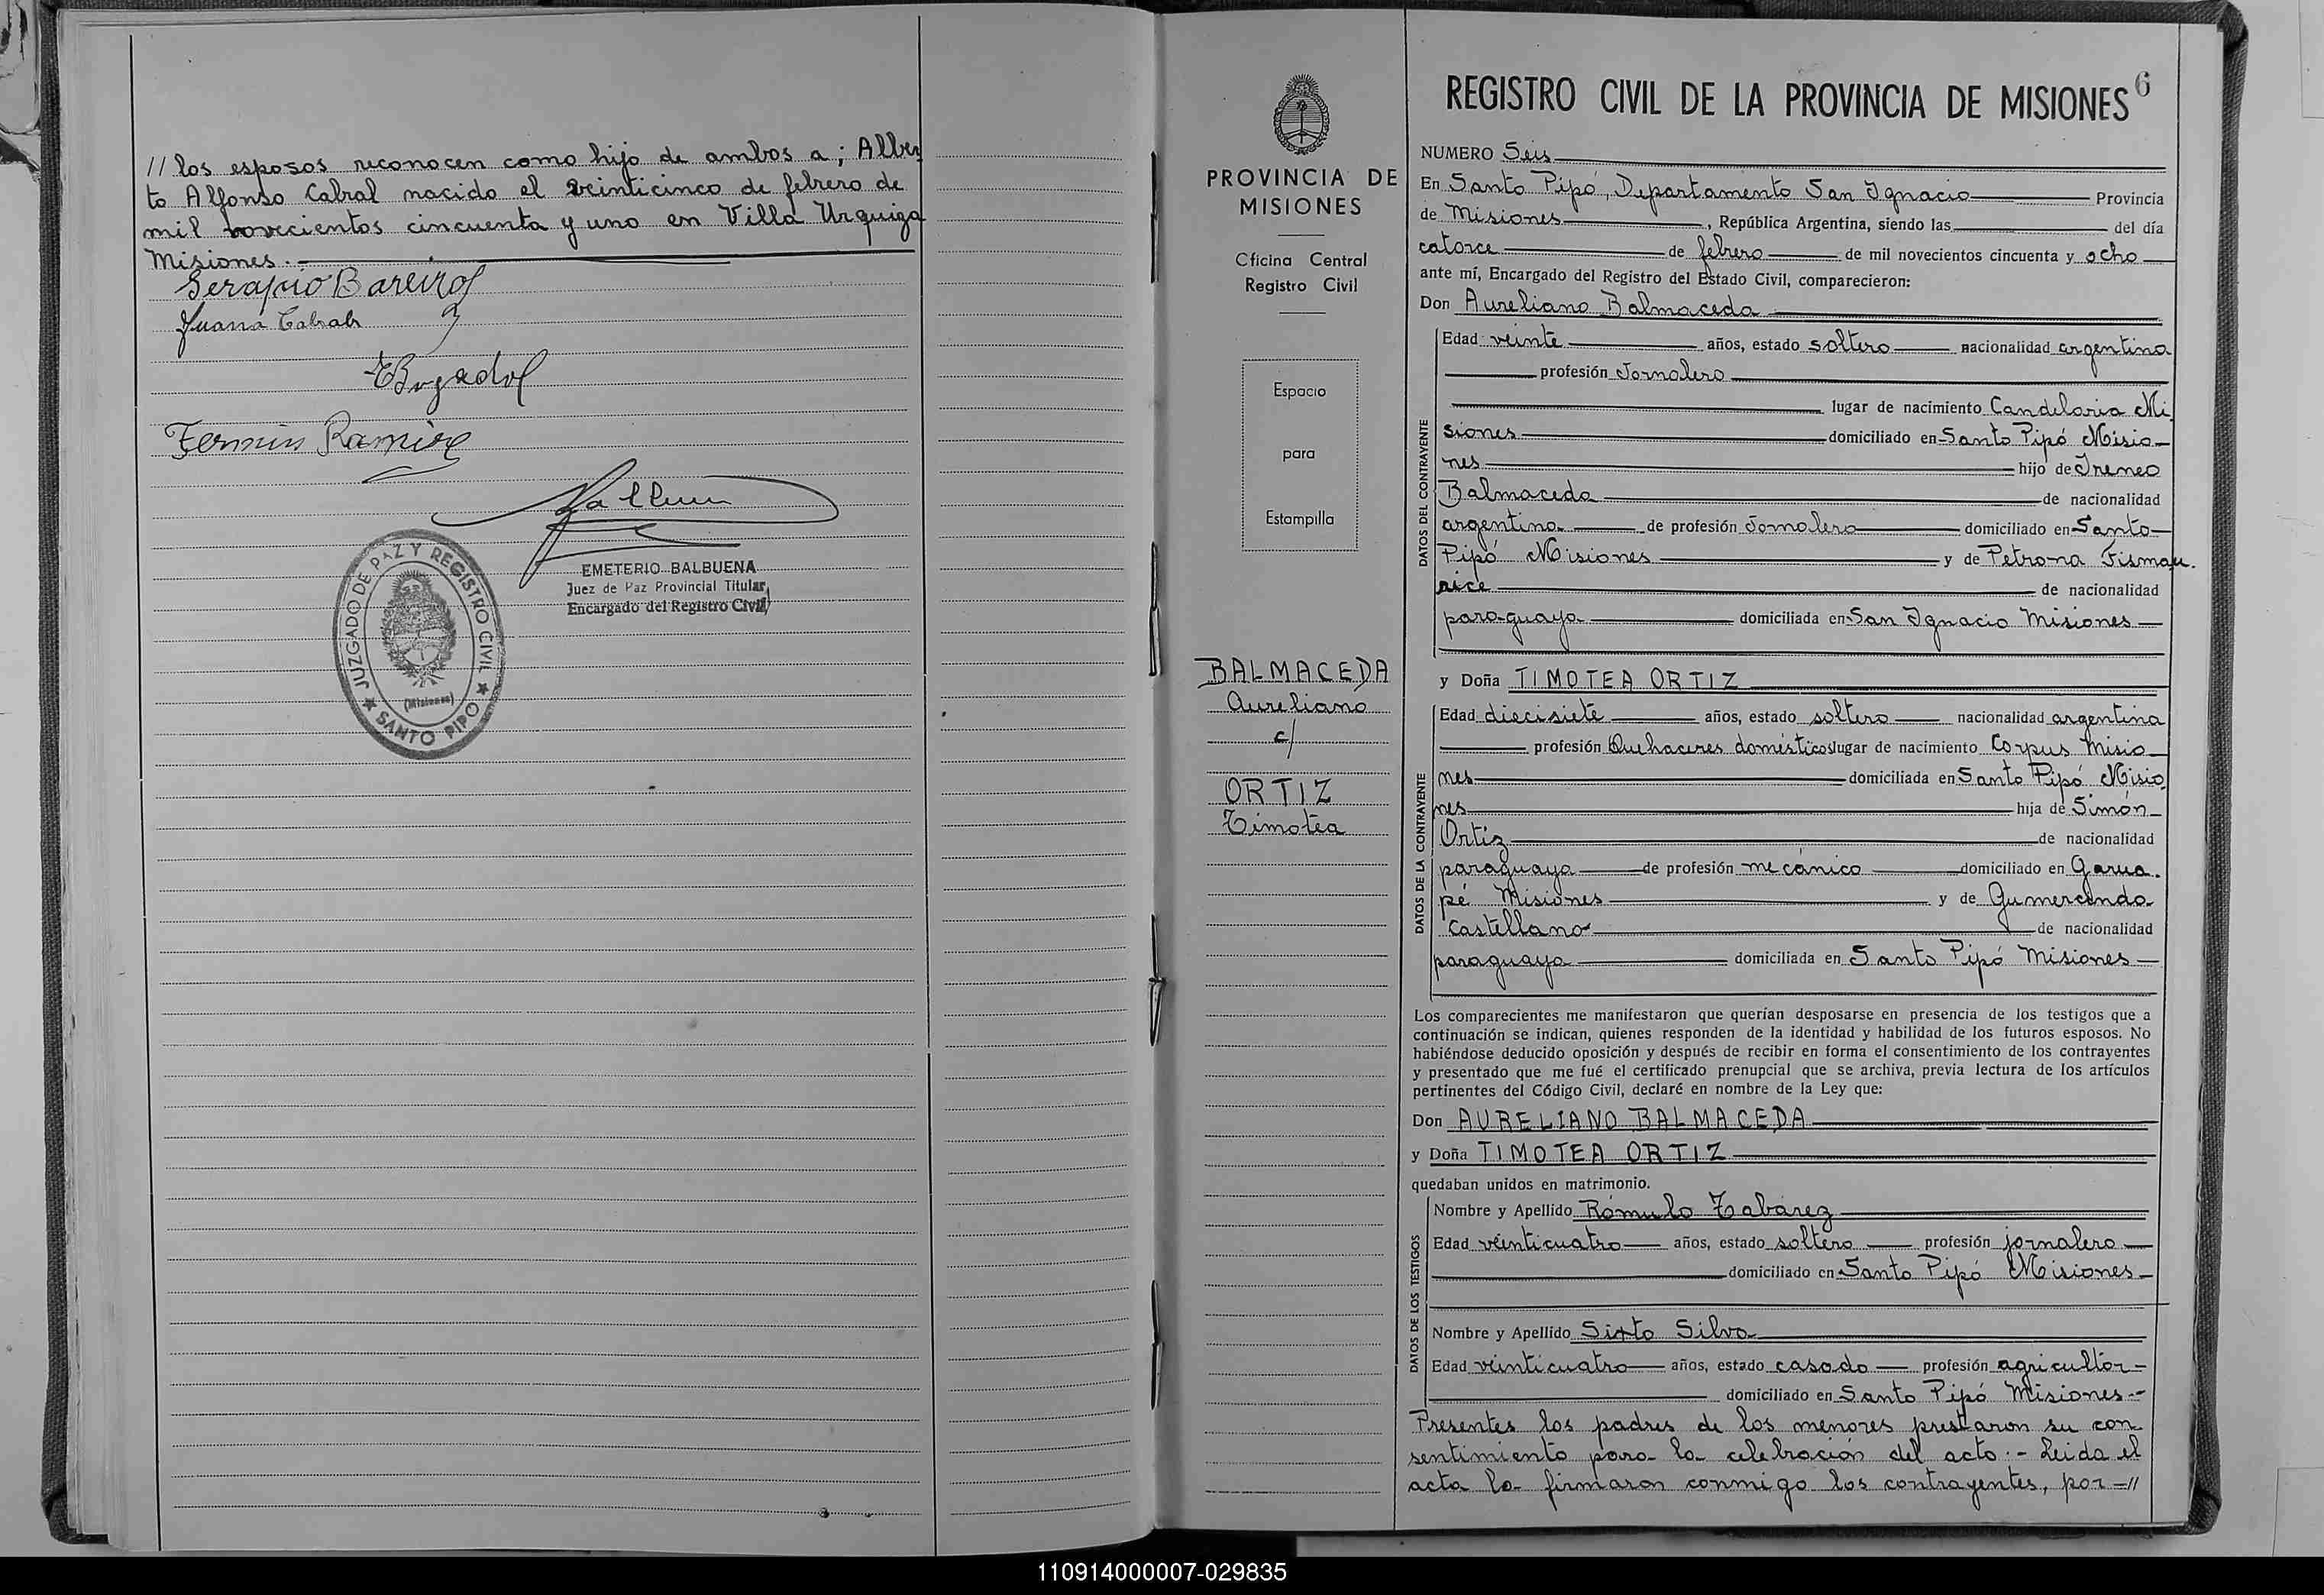 // los esposos reconocen como hijo de ambos a; Alber
to Alfonso Cabral nacido el veinticinco de febrero de
mil novecientos cincuenta y uno en Villa Urquiza
Misiones.-
Serapio Bareiro
Juana Cabral
EBogado
Fermin Ramirez
EMETERIO BALBUENA
Juez de Paz Provincial Titular
Encargado del Registro Civil
JUZGADO DE PAZ Y REGISTRO CIVIL
(Misiones)
SANTO PIPO
PROVINCIA DE
MISIONES
Oficina Central
Registro Civil
Espacio
para
Estampilla
BALMACEDA
Aureliano
c/
ORTIZ
Timotea
REGISTRO CIVIL DE LA PROVINCIA DE MISIONES 6
NUMERO Seis
En Santo Pipó, Departamento San Ignacio Provincia
de Misiones, República Argentina, siendo las del día
catorce de febrero de mil novecientos cincuenta y ocho
ante mí, Encargado del Registro del Estado Civil, comparecieron:
Don Aureliano Balmaceda
DATOS DEL CONTRAYENTE
Edad veinte años, estado soltero nacionalidad argentina
profesión Jornalero
lugar de nacimiento Candelaria Mi
siones domiciliado en Santo Pipó Misio-
nes hijo de Ireneo
Balmaceda de nacionalidad
argentina de profesión Jornalero domiciliado en Santo
Pipó Misiones y de Petrona
de nacionalidad
paraguaya domiciliada en San Ignacio Misiones
y Doña TIMOTEA ORTIZ
DATOS DE LA CONTRAYENTE
Edad diecisiete años, estado soltera nacionalidad argentina
profesión Quehaceres domésticos lugar de nacimiento Corpus Misio-
nes domiciliada en Santo Pipó Misio-
nes hija de Simón
Ortiz de nacionalidad
paraguaya de profesión mecánico domiciliado en Garua-
pé Misiones y de Gumercinda
Castellano de nacionalidad
paraguaya domiciliada en Santo Pipó Misiones
Los comparecientes me manifestaron que querían desposarse en presencia de los testigos que a
continuación se indican, quienes responden de la identidad y habilidad de los futuros esposos. No
habiéndose deducido oposición y después de recibir en forma el consentimiento de los contrayentes
y presentado que me fué el certificado prenupcial que se archiva, previa lectura de los artículos
pertinentes del Código Civil, declaré en nombre de la Ley que:
Don AURELIANO BALMACEDA
y Doña TIMOTEA ORTIZ
quedaban unidos en matrimonio.
DATOS DE LOS TESTIGOS
Nombre y Apellido Rómulo Tabárez
Edad veinticuatro años, estado soltero profesión jornalero
domiciliado en Santo Pipó Misiones
Nombre y Apellido Sixto Silva
Edad veinticuatro años, estado casado profesión agricultor
domiciliado en Santo Pipó Misiones.-
Presentes los padres de los menores prestaron su con-
sentimiento para la celebración del acto.- Leida el
acta la firmaron conmigo los contrayentes, por -//
110914000007-029835